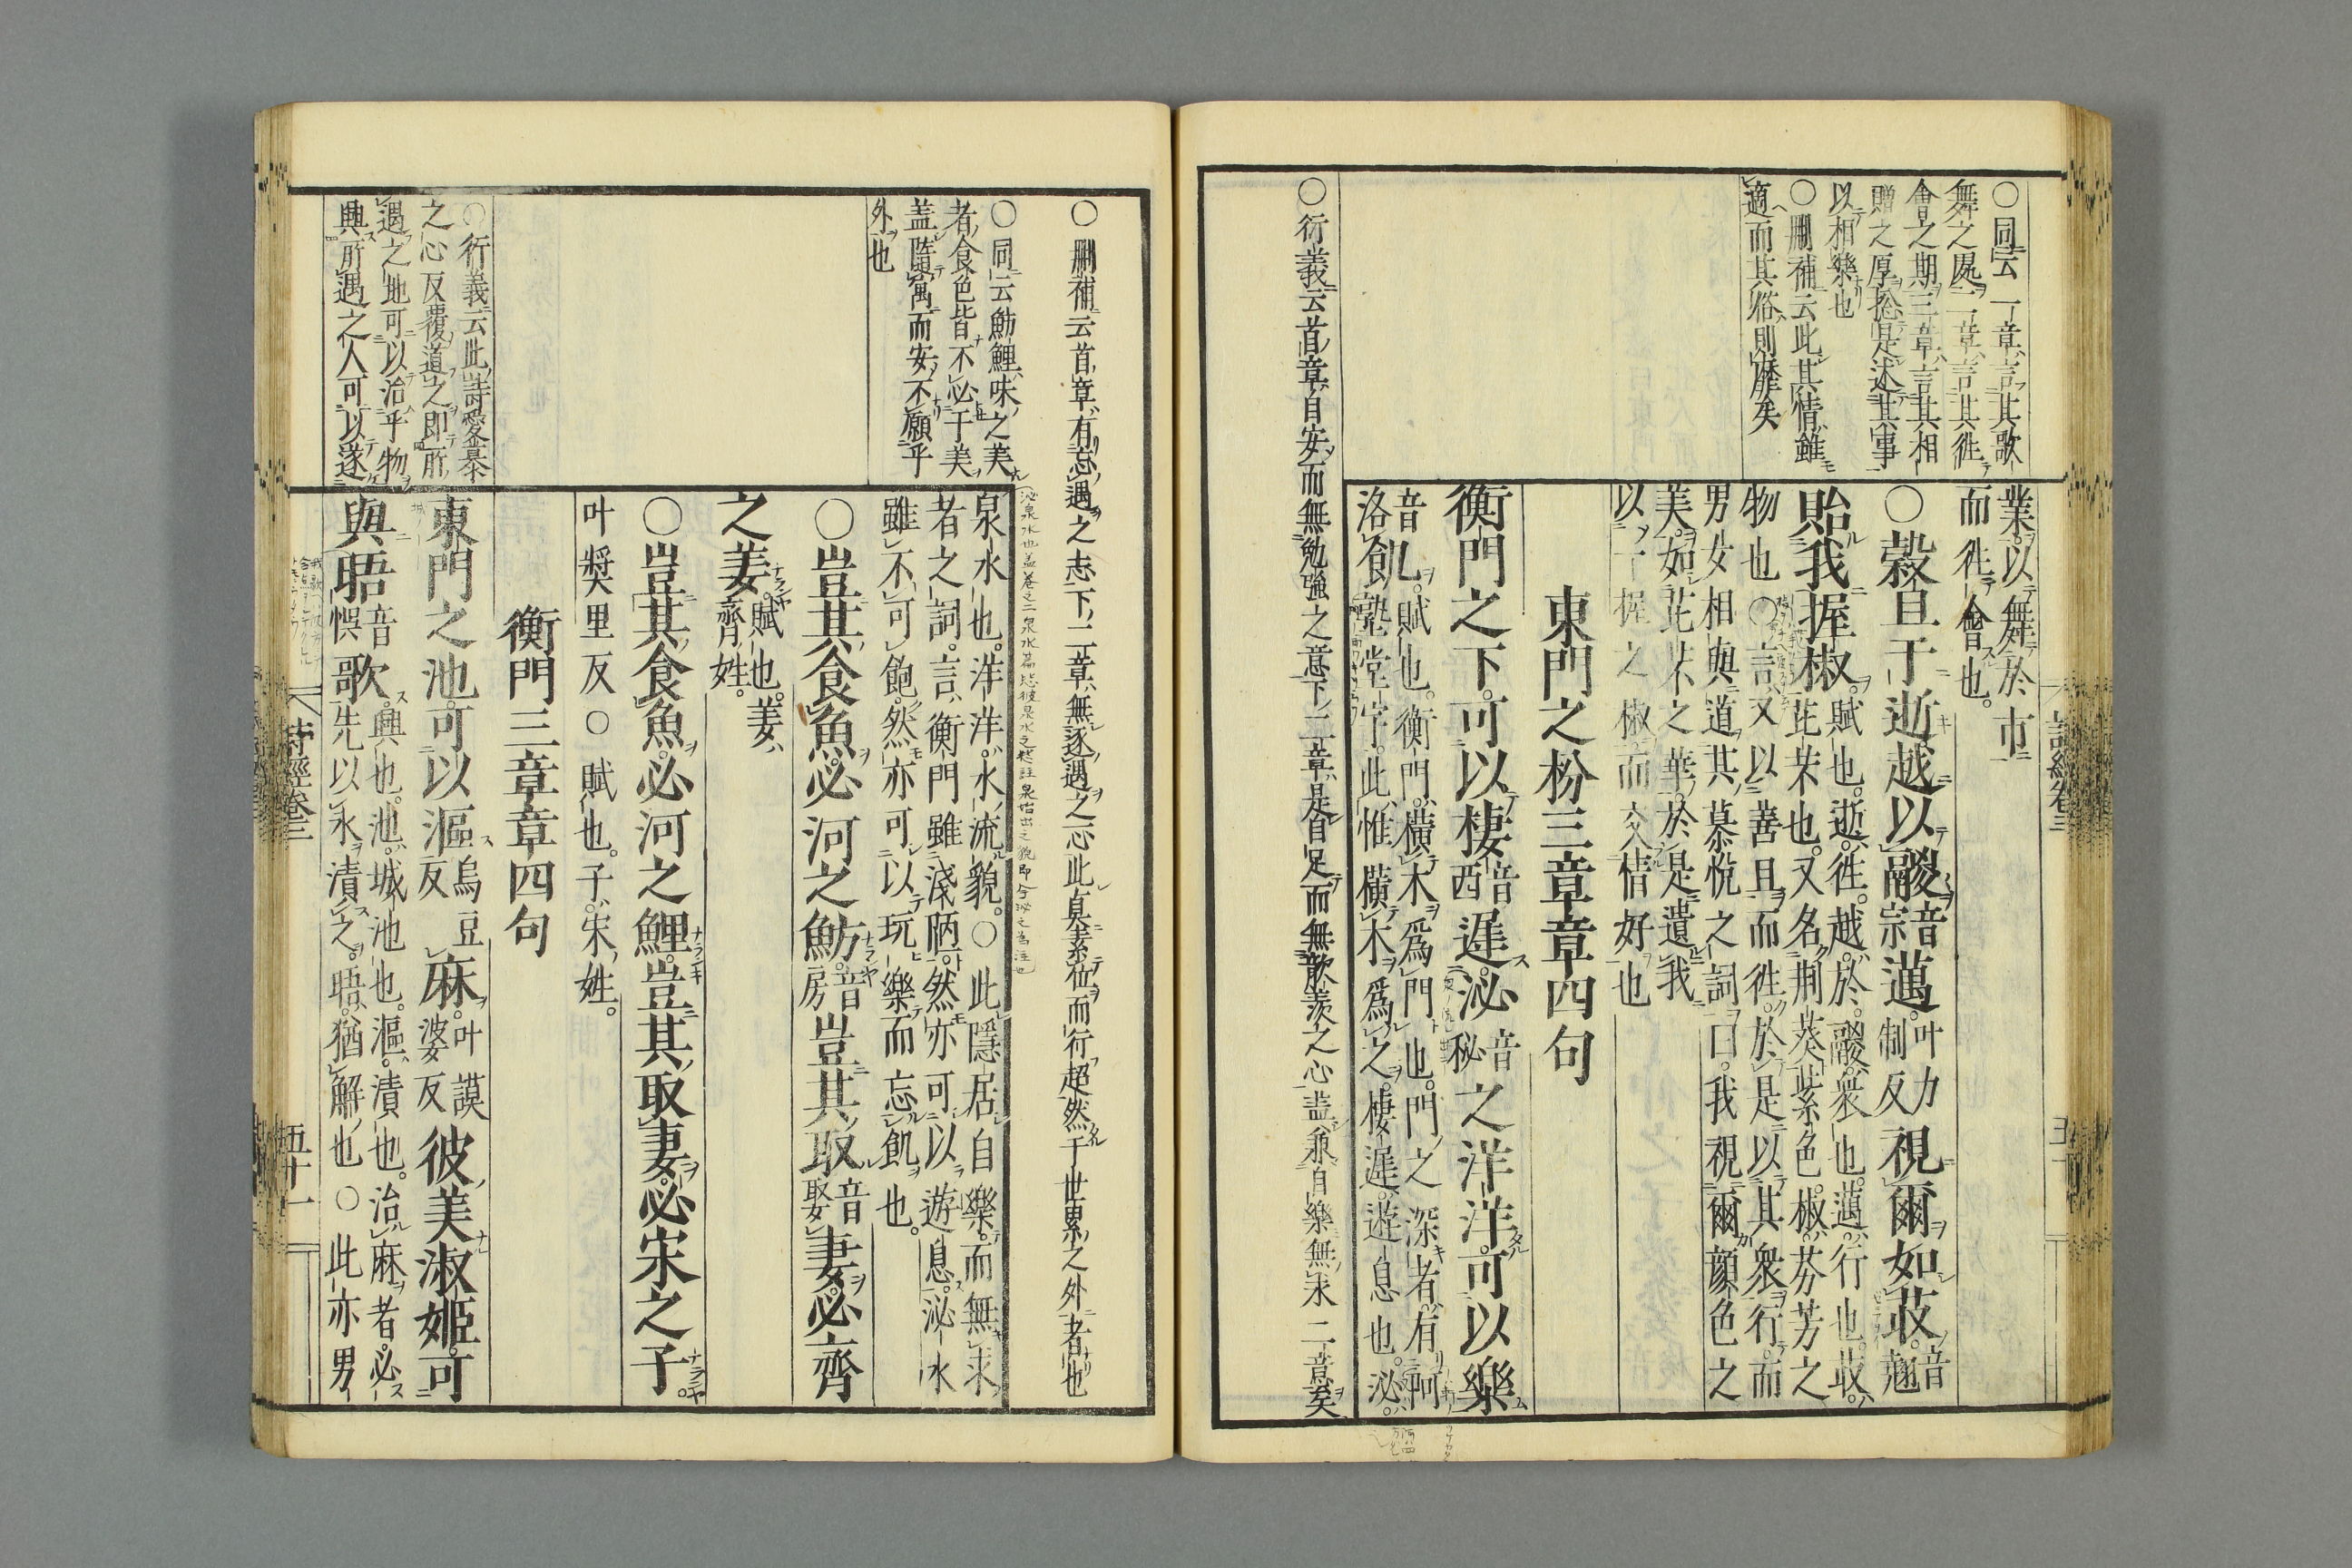 ○同云一章言其歌
舞之處二章言其徃
會之期三章言其相
贈之厚摠是述其事
以相樂也
○刪補云此其情雖
適而其俗則靡矣
業以舞於市
而徃會也。
○榖旦于逝。越以鬷音宗邁。叶力制反視爾如荍。音翹
貽我握椒。賦也。逝、徃。越、於。鬷、衆也。邁、行也。荍、
芘芣也。又名荆葵紫色。椒、芬芳之
物也○言又以善旦而徃於是以其衆行而
男女相與道其慕悅之詞曰。我視爾顔色之
美。如芘芣之華於是遺我
以一握之椒而交情好也
東門之枌三章章四句
衡門之下。可以棲音西遲。泌音秘之洋洋。可以樂
音洛飢。賦也。衡門、橫木爲門也。門之深者、有阿
塾堂宇。此惟橫木爲之。棲遲、遊息也。泌、
○衍義云首章自安而無勉強之意下二章是自足而無歆羨之心盖兼自樂無求二意矣
○刪補云首章有忘遇之志下二章無逐遇之心此真素位而行超然于世累之外者也
○同云魴鯉味之美
者食色皆不必于美
盖隨寓而安不願乎
外也
泌泉水也盖卷之二泉水篇毖彼泉水之毖註泉始出之貌即今泌之音注也
泉水也。洋洋、水流貌。○此隱居自樂。而無求
者之詞。言衡門雖淺陋。然亦可以遊息。泌水
雖不可飽。然亦可以玩樂而忘飢也。
○豈其食魚。必河之魴。音房豈其取音娶妻。必齊
之姜。賦也。姜、齊姓。
○豈其食魚。必河之鯉。豈其取妻。必宋之子。
叶奬里反○賦也。子、宋姓。
衡門三章章四句
○衍義云此詩愛慕
之心反覆道之即所
遇之地可以治乎物
興所遇之人可以遂
東門之池。可以漚烏豆反麻。叶謨婆反彼美淑姬。可
與晤音悞歌。興也。池、城池也。漚、漬也。治麻者。必
先以水漬之。晤、猶解也○此亦男
詩經卷三
五十一